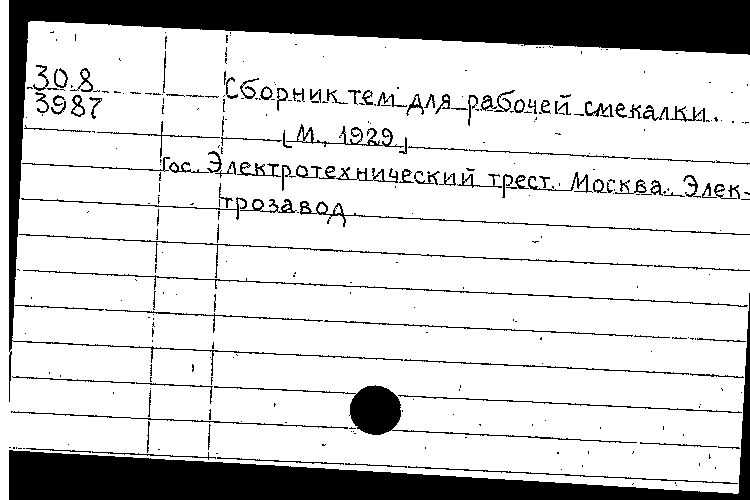 30.8
3987
Сборник тем для рабочей смекалки.
[М., 1929]
Гос. Электротехнический трест. Москва. Элек-
трозавод.